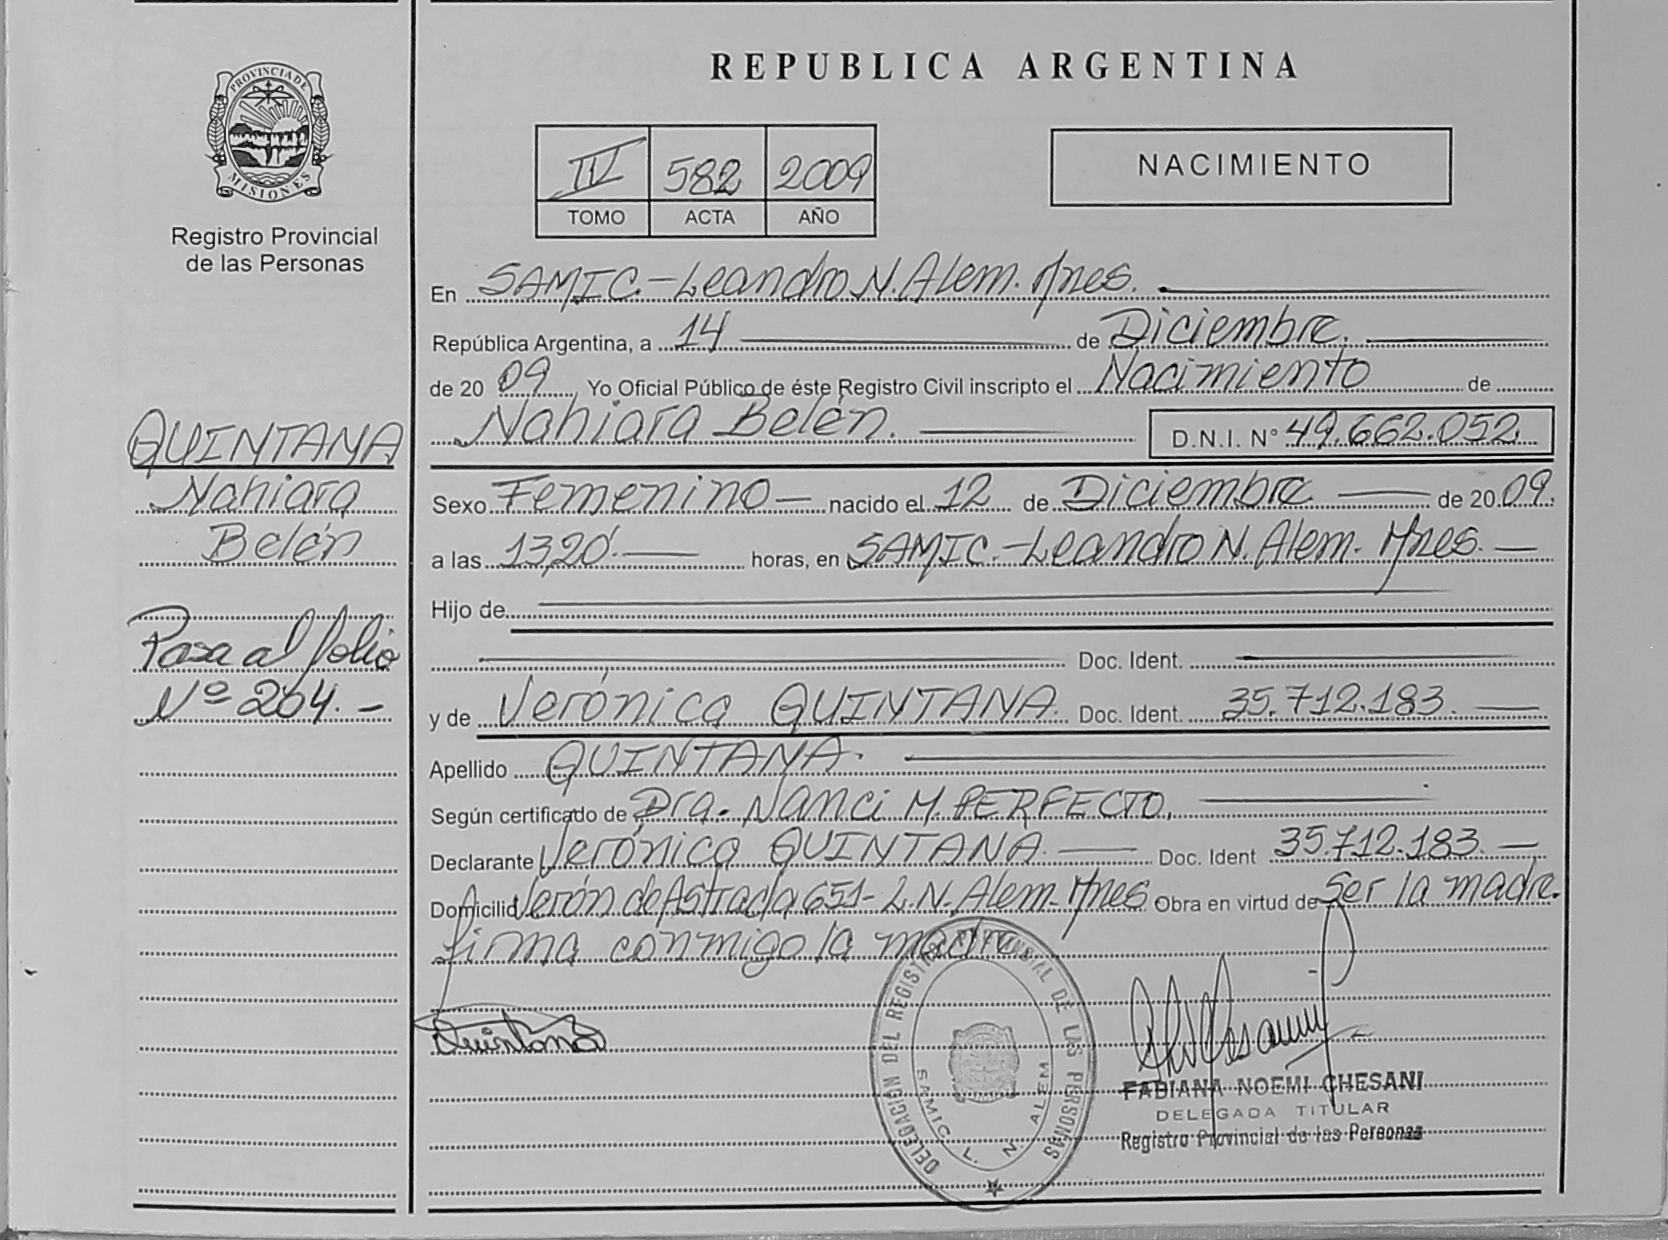 PROVINCIA DE
MISIONES
Registro Provincial
de las Personas
QUINTANA
Nahiara
Belén
Pasa al folio
Nº 264.-
REPUBLICA ARGENTINA
IV 582 2009
TOMO ACTA AÑO
NACIMIENTO
En SAMIC.-Leandro N. Alem. Mnes.
República Argentina, a 14 de Diciembre.
de 20 09 Yo Oficial Público de éste Registro Civil inscripto el Nacimiento de
Nahiara Belén. D.N.I. Nº 49.662.052
Sexo Femenino nacido el 12 de Diciembre de 20 09.
a las 13,20 horas, en SAMIC.-Leandro N. Alem. Mnes.
Hijo de
Doc. Ident.
y de Verónica QUINTANA. Doc. Ident. 35.712.183.
Apellido QUINTANA.
Según certificado de Dra. Nanci M. PERFECTO,
Declarante Verónica QUINTANA. Doc. Ident 35.712.183.
Domicilio Verón de Astrada 651- L.N. Alem-Mnes Obra en virtud de Ser la madre.
firma conmigo la madre
Quintana
DELEGACION DEL REGISTRO PROVINCIAL DE LAS PERSONAS
SAMIC L. N. ALEM
FABIANA NOEMI CHESANI
DELEGADA TITULAR
Registro Provincial de las Personas